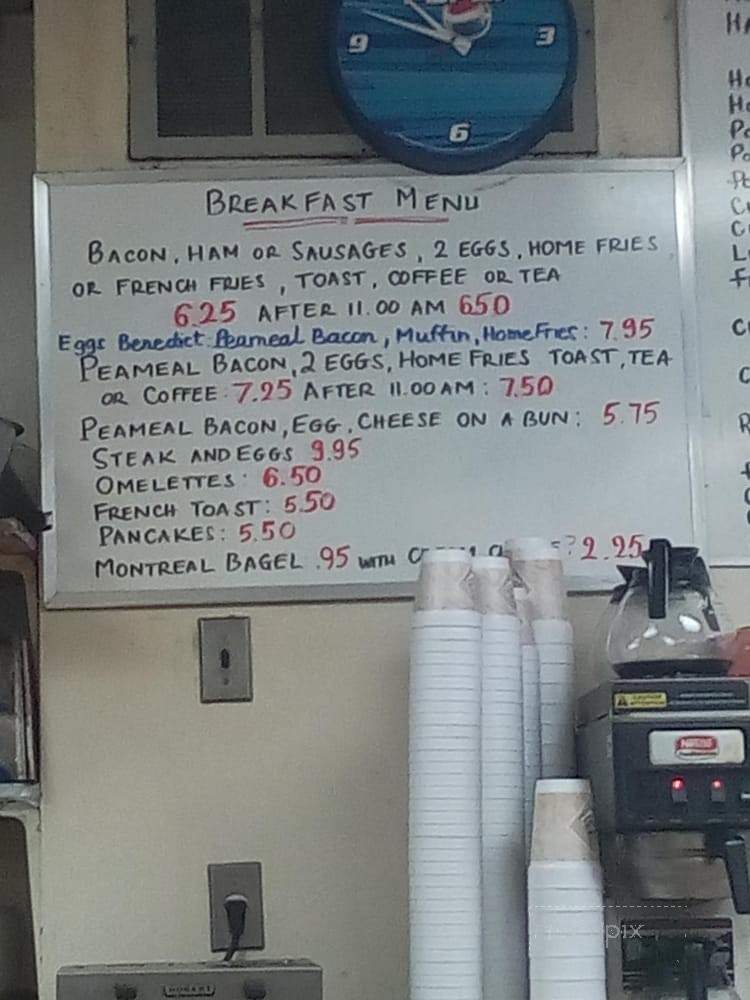 9 3
6
BREAKFAST MENU
BACON, HAM OR SAUSAGES, 2 EGGS, HOME FRIES
OR FRENCH FRIES, TOAST, COFFEE OR TEA
6.25 AFTER 11.00 AM 650
Eggs Benedict: Peameal Bacon, Muffin, HomeFries: 7.95
PEAMEAL BACON, 2 EGGS, HOME FRIES TOAST, TEA
OR COFFEE: 7.25 AFTER 11.00 AM: 7.50
PEAMEAL BACON, EGG, CHEESE ON A BUN: 5.75
STEAK AND EGGS 9.95
OMELETTES: 6.50
FRENCH TOAST: 5.50
PANCAKES: 5.50
MONTREAL BAGEL .95 WITH 2.25
CAUTION
NESTLÉ
HOBART
pix